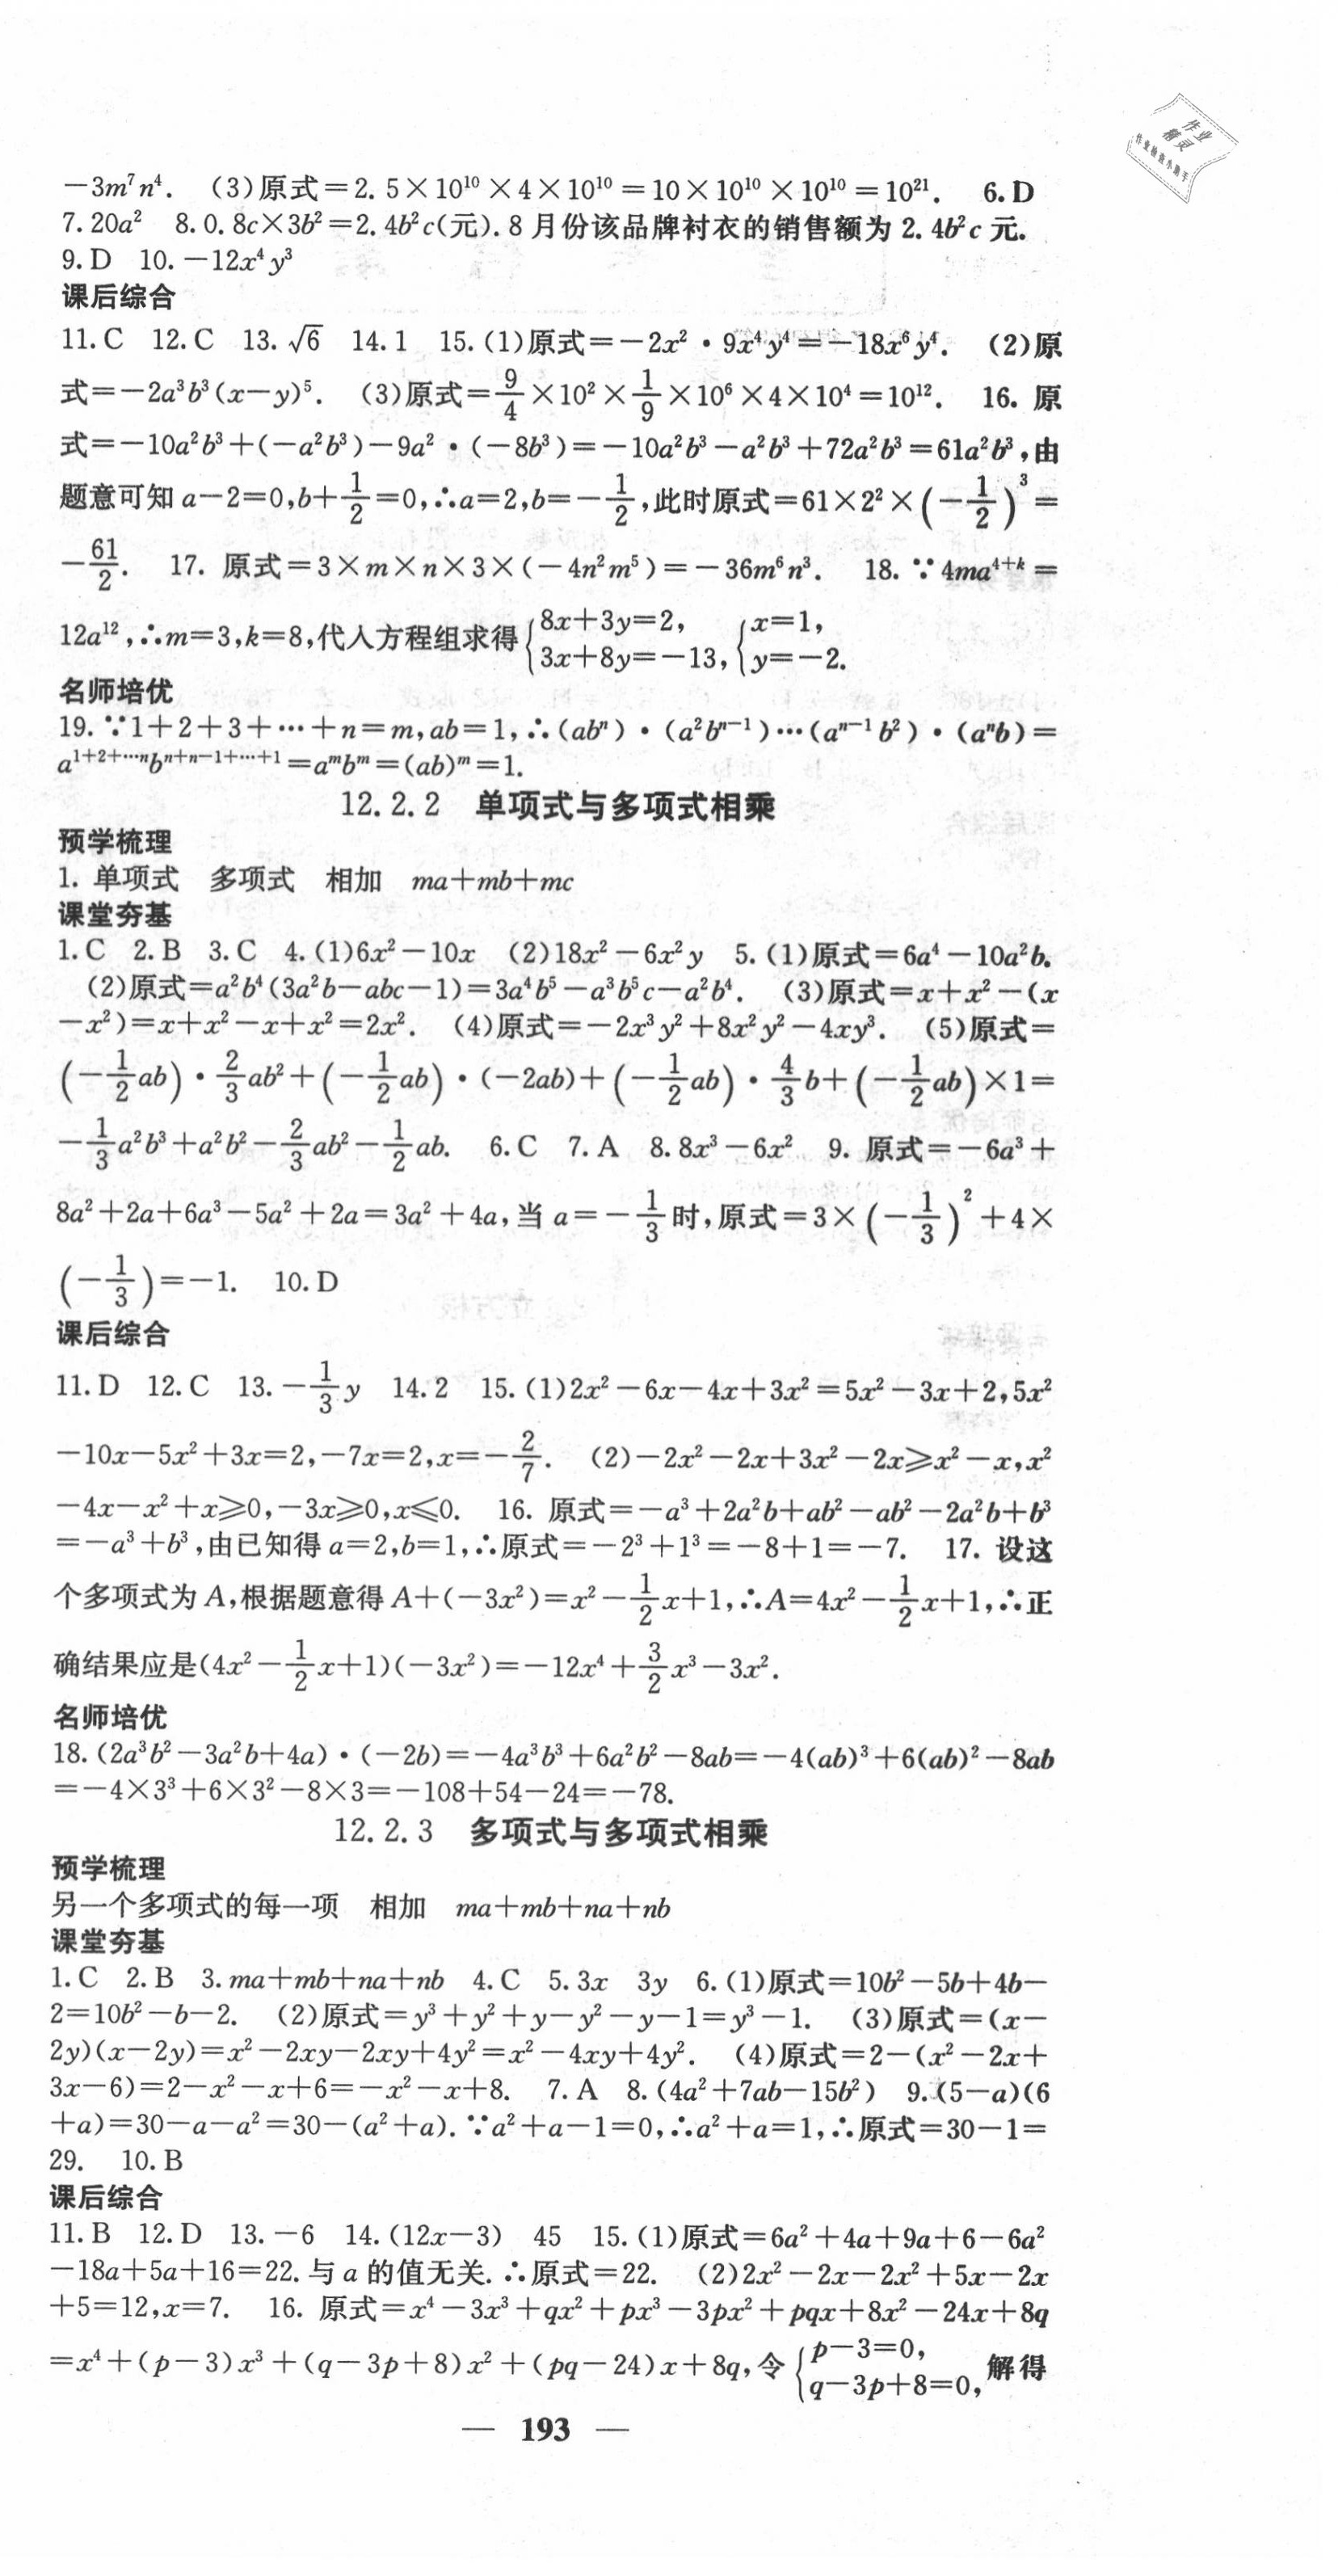 作业
精灵
作业检查小助手
－3m⁷n⁴.　(3)原式＝2.5×10¹⁰×4×10¹⁰＝10×10¹⁰×10¹⁰＝10²¹.　6.D
7.20a²　8.0.8c×3b²＝2.4b²c(元).8月份该品牌衬衣的销售额为2.4b²c元.
9.D　10.－12x⁴y³
课后综合
11.C　12.C　13.√6　14.1　15.(1)原式＝－2x²·9x⁴y⁴＝－18x⁶y⁴.　(2)原
式＝－2a³b³(x－y)⁵.　(3)原式＝9/4×10²×1/9×10⁶×4×10⁴＝10¹².　16. 原
式＝－10a²b³＋(－a²b³)－9a²·(－8b³)＝－10a²b³－a²b³＋72a²b³＝61a²b³,由
题意可知a－2＝0,b＋1/2＝0,∴a＝2,b＝－1/2,此时原式＝61×2²×(－1/2)³＝
－61/2.　17. 原式＝3×m×n×3×(－4n²m⁵)＝－36m⁶n³.　18. ∵4ma⁴⁺ᵏ＝
12a¹²,∴m＝3,k＝8,代入方程组求得{8x＋3y＝2, 3x＋8y＝－13, {x＝1, y＝－2.
名师培优
19.∵1＋2＋3＋…＋n＝m,ab＝1,∴(abⁿ)·(a²bⁿ⁻¹)…(aⁿ⁻¹b²)·(aⁿb)＝
a¹⁺²⁺…ⁿbⁿ⁺ⁿ⁻¹⁺…⁺¹＝aᵐbᵐ＝(ab)ᵐ＝1.
12.2.2　单项式与多项式相乘
预学梳理
1. 单项式　多项式　相加　ma＋mb＋mc
课堂夯基
1.C　2.B　3.C　4.(1)6x²－10x　(2)18x²－6x²y　5.(1)原式＝6a⁴－10a²b.
(2)原式＝a²b⁴(3a²b－abc－1)＝3a⁴b⁵－a³b⁵c－a²b⁴.　(3)原式＝x＋x²－(x
－x²)＝x＋x²－x＋x²＝2x².　(4)原式＝－2x³y²＋8x²y²－4xy³.　(5)原式＝
(－1/2ab)·2/3ab²＋(－1/2ab)·(－2ab)＋(－1/2ab)·4/3b＋(－1/2ab)×1＝
－1/3a²b³＋a²b²－2/3ab²－1/2ab.　6.C　7.A　8.8x³－6x²　9. 原式＝－6a³＋
8a²＋2a＋6a³－5a²＋2a＝3a²＋4a,当a＝－1/3时,原式＝3×(－1/3)²＋4×
(－1/3)＝－1.　10.D
课后综合
11.D　12.C　13.－1/3y　14.2　15.(1)2x²－6x－4x＋3x²＝5x²－3x＋2,5x²
－10x－5x²＋3x＝2,－7x＝2,x＝－2/7.　(2)－2x²－2x＋3x²－2x≥x²－x,x²
－4x－x²＋x≥0,－3x≥0,x≤0.　16. 原式＝－a³＋2a²b＋ab²－ab²－2a²b＋b³
＝－a³＋b³,由已知得a＝2,b＝1,∴原式＝－2³＋1³＝－8＋1＝－7.　17. 设这
个多项式为A,根据题意得A＋(－3x²)＝x²－1/2x＋1,∴A＝4x²－1/2x＋1,∴正
确结果应是(4x²－1/2x＋1)(－3x²)＝－12x⁴＋3/2x³－3x².
名师培优
18.(2a³b²－3a²b＋4a)·(－2b)＝－4a³b³＋6a²b²－8ab＝－4(ab)³＋6(ab)²－8ab
＝－4×3³＋6×3²－8×3＝－108＋54－24＝－78.
12.2.3　多项式与多项式相乘
预学梳理
另一个多项式的每一项　相加　ma＋mb＋na＋nb
课堂夯基
1.C　2.B　3.ma＋mb＋na＋nb　4.C　5.3x　3y　6.(1)原式＝10b²－5b＋4b－
2＝10b²－b－2.　(2)原式＝y³＋y²＋y－y²－y－1＝y³－1.　(3)原式＝(x－
2y)(x－2y)＝x²－2xy－2xy＋4y²＝x²－4xy＋4y².　(4)原式＝2－(x²－2x＋
3x－6)＝2－x²－x＋6＝－x²－x＋8.　7.A　8.(4a²＋7ab－15b²)　9.(5－a)(6
＋a)＝30－a－a²＝30－(a²＋a).∵a²＋a－1＝0,∴a²＋a＝1,∴原式＝30－1＝
29.　10.B
课后综合
11.B　12.D　13.－6　14.(12x－3)　45　15.(1)原式＝6a²＋4a＋9a＋6－6a²
－18a＋5a＋16＝22.与a的值无关.∴原式＝22.　(2)2x²－2x－2x²＋5x－2x
＋5＝12,x＝7.　16. 原式＝x⁴－3x³＋qx²＋px³－3px²＋pqx＋8x²－24x＋8q
＝x⁴＋(p－3)x³＋(q－3p＋8)x²＋(pq－24)x＋8q,令{p－3＝0, q－3p＋8＝0, 解得
— 193 —